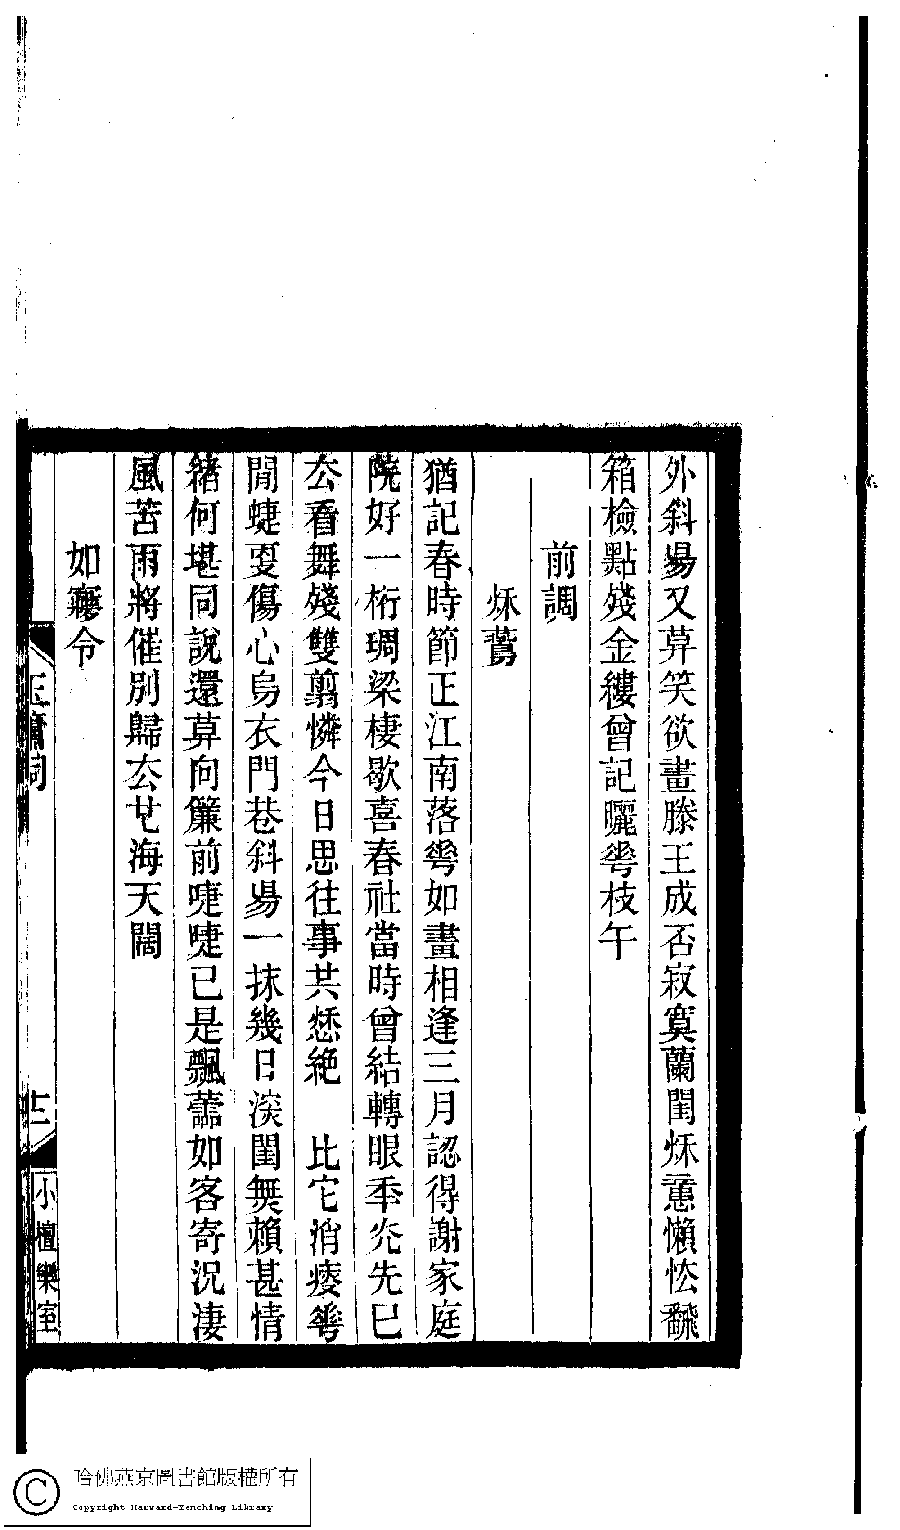 外斜昜又莫笑欲畫滕王成否寂寞蘭閨秌蕙懶怂飜
箱檢點殘金縷曾記曬蕚枝午
前調
秌鷰
猶記春時節正江南落蕚如畫相逢三月認得謝家庭
院好一桁琱梁棲歇喜春社當時曾結轉眼秊灮先已
厺看舞殘雙翦憐今日思往事共愁絕　比它消瘦蕚
閒蜨叓傷心烏衣門巷斜昜一抹幾日湥閨無賴甚情
緒何堪同說還莫向簾前啑啑已是飄蘦如客寄況淒
風苦雨將催別歸厺也海天闊
如夢令
玉簫詞
十二
小檀欒室
哈佛燕京圖書館版權所有
Copyright Harvard-Yenching Library